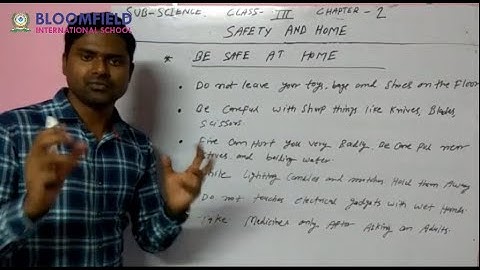 BLOOMFIELD
INTERNATIONAL SCHOOL
SUB- SCIENCE. CLASS- III CHAPTER - 2
SAFETY AND HOME
* BE SAFE AT HOME
• Do not leave your toys, bags and shoes on the floor
• Be careful with sharp things like knives, Blades,
scissors.
• Fire can Hurt you very Badly. Be careful near
stoves and boiling water
While lighting candles and matches Hold them Away
Do not touch electrical gadgets with wet Hands
Take Medicines only After Asking an Adults.